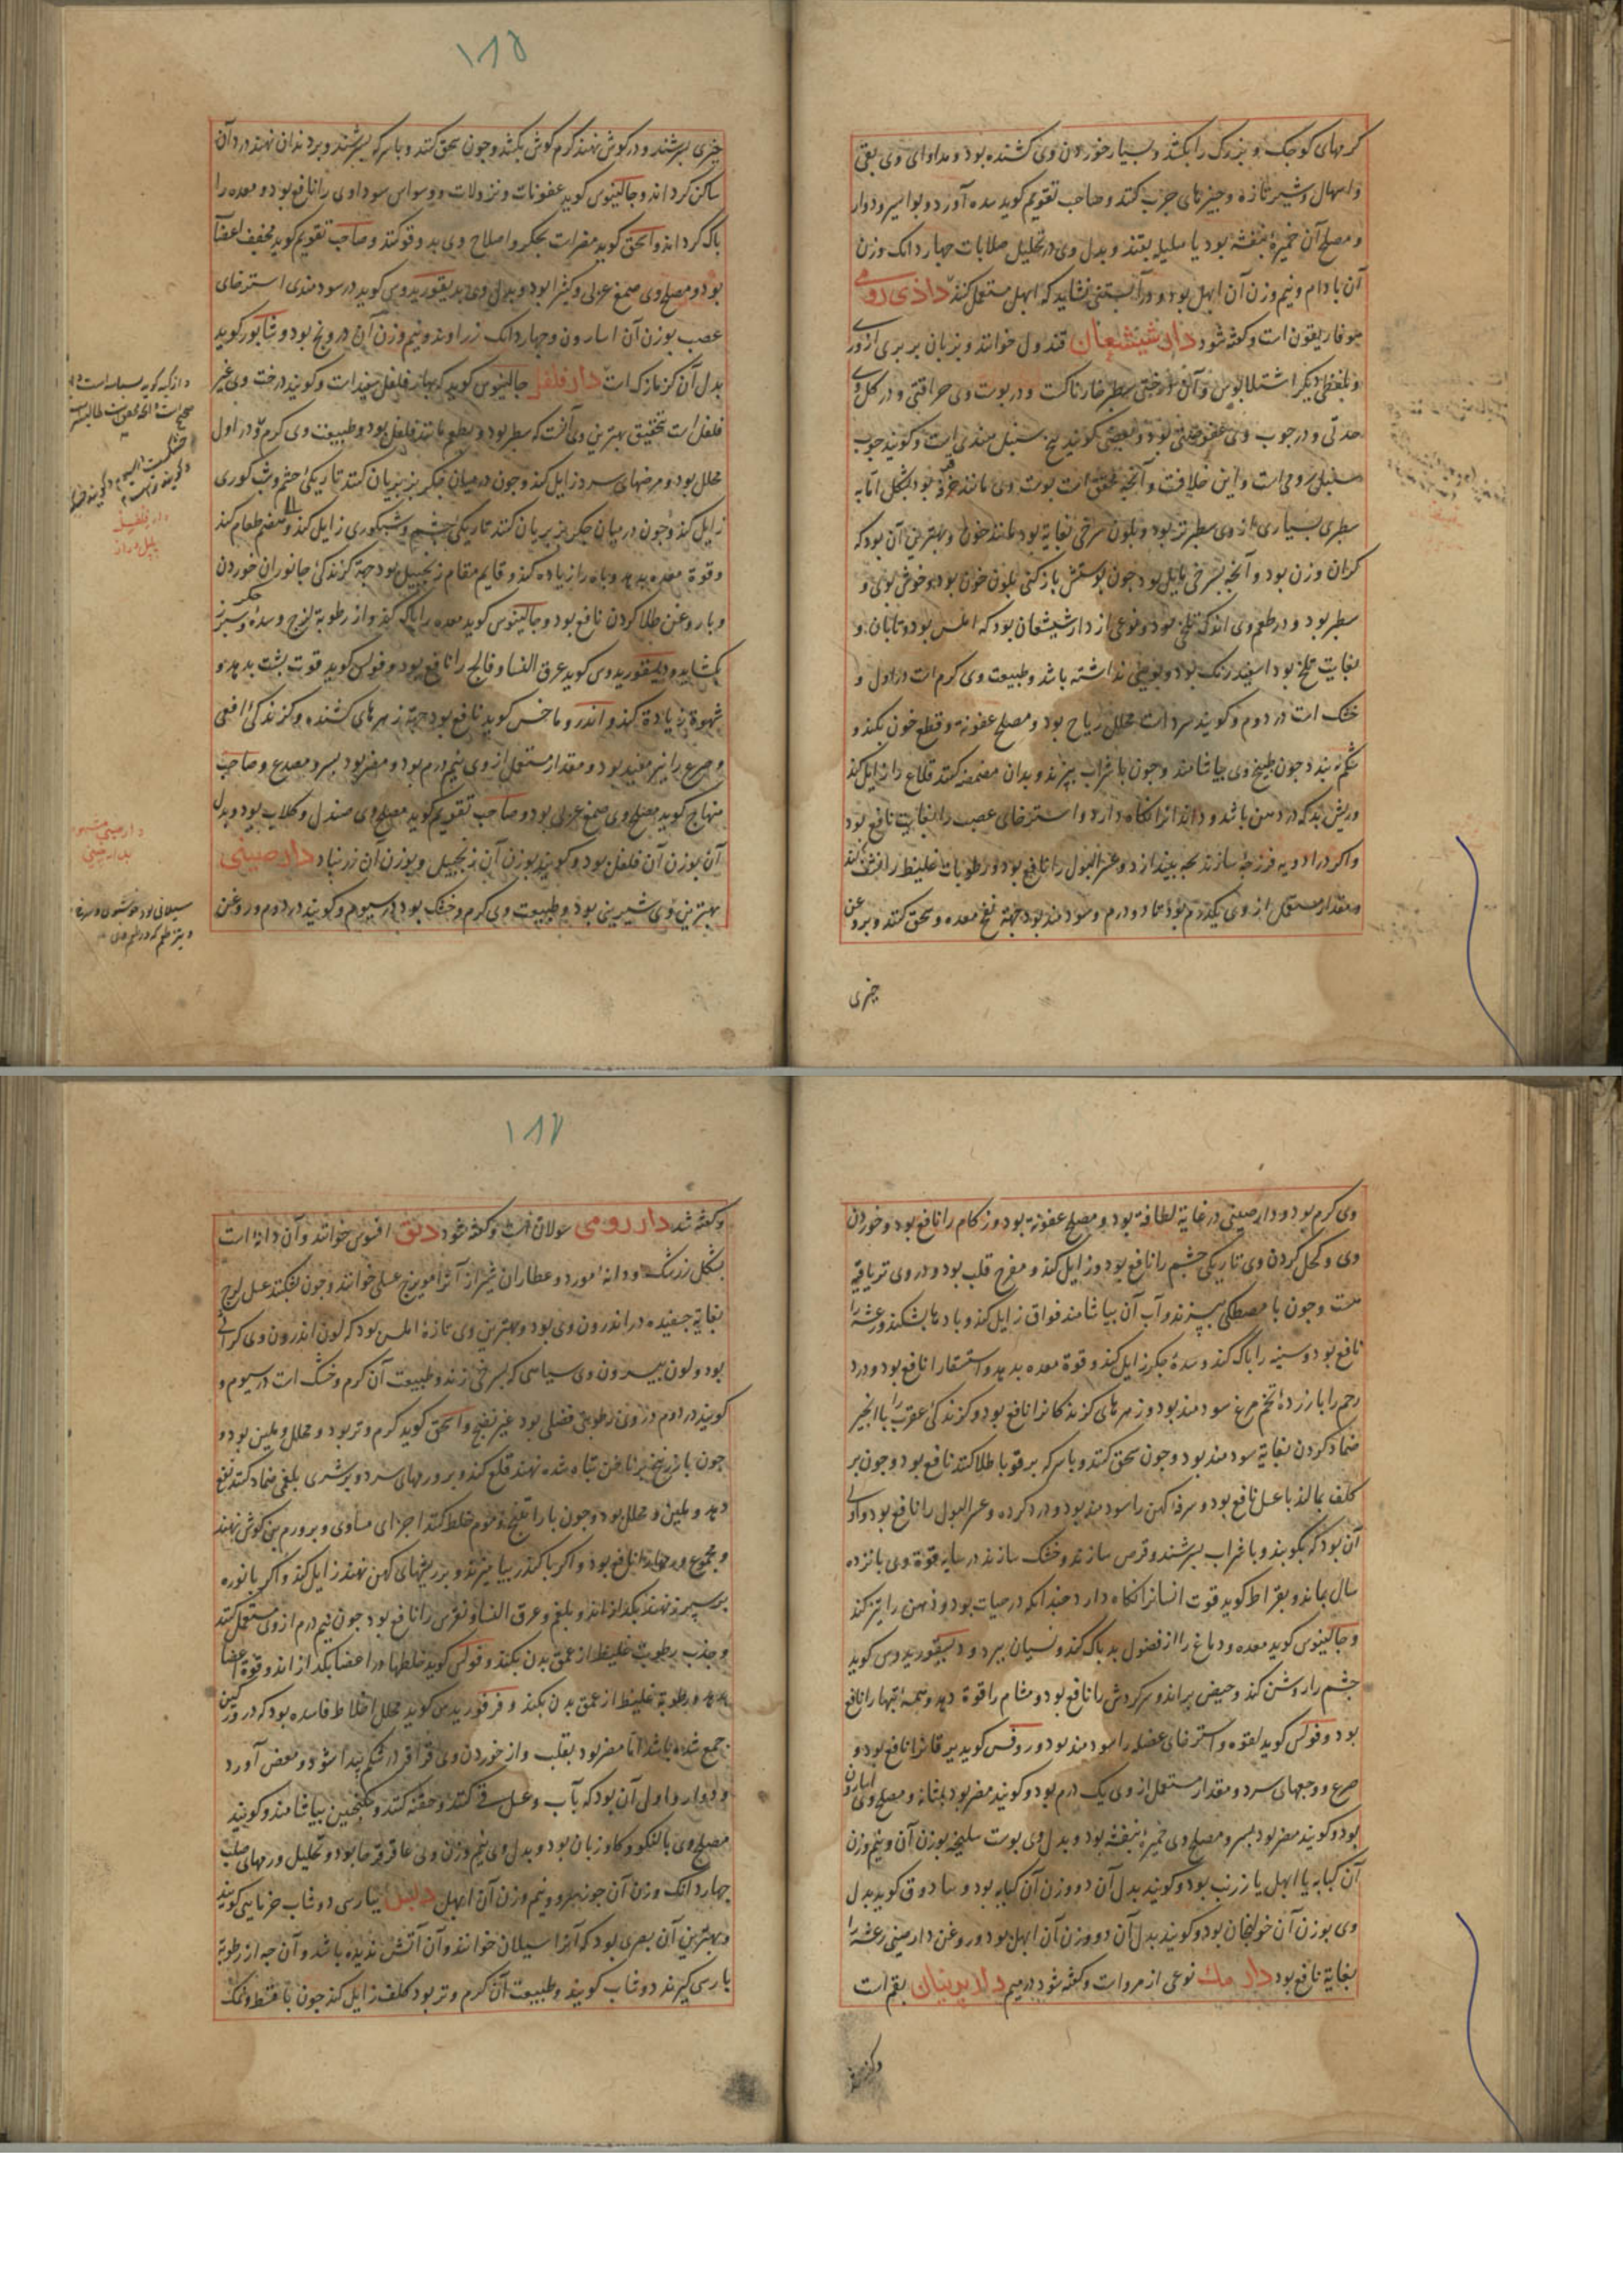 کرمهای کوجک و بزرک را بکشد و بسیار خوردن وی کشنده بود و مداوای وی بقی
و اسهال و شیر تازه و جیزهای جرب کنند و صاحب تقویم کوید سده آورد و بواسیر و دوار
و مصلح آن خمیرهٔ بنفشه بود یا هلیله بقند و بدل وی در تحلیل صلابات جهار دانک وزن
آن بادام و نیم وزن آن ابهل بود و در آبستنی نشاید که ابهل مستعمل کنند داذی رومی
هوفاریقون است و کفته شود دار شیشعان قندول خوانند و بزبان بربری ازوری
و بلفظی دیکر اشتلابوس و آن درختی سطبر خارناکست و در بوست وی حرافتی و در کل وی
حدتی و در جوب وی عفوصتی بود و بعضی کویند بیخ سنبل هندی است و کویند جوب
سنبل رومی است و این خلافست و آنجه محقق است بوست وی مانند قرفه بود بشکل اما به
سطبری بسیاری از وی سطبرتر بود و بلون سرخی بغایة بود مانند خون و بهترین آن بود که
کران وزن بود و آنجه بسرخی مایل بود جون بوستش باز کنی بلون خون بود و خوش بوی و
سطبر بود و در طعم وی اندک تلخی بود و نوعی از دار شیشعان بود که املس بود و تابان و
بغایت تلخ بود اسفید رنک بود و بویی نداشته باشد و طبیعت وی کرم است در اول و
خشک است در دوم و کویند سرد است محلل ریاح بود و مصلح عفونة و قطع خون بکند و
شکم ببندد جون طبیخ وی بیاشامند و جون با شراب بپزند و بدان مضمضه کنند قلاع را زایل کند
و ریش بد که در دهن باشد و دندانرا نکاه دارد و استرخای عصب را بغایت نافع بود
و اکر در ادویه فرزجهٔ سازند بجه بیندازد و عسر البول را نافع بود و رطوبات غلیظ را نشف کند
و مقدار مستعمل از وی یکدرم بود تا دو درم و سودمند بود جهة نفخ معده و سحق کنند و بروغن
جیزی
۱۸۵
جیزی بسرشند و در کوش نهند کرم کوش بکشد و جون سحق کنند و با سرکه بسرشند و بر دندان نهند درد آن
ساکن کرداند و جالینوس کوید عفونات و نزولات و وسواس سوداوی را نافع بود و معده را
باک کرداند و اسحق کوید مضر است بجکر و اصلاح وی بدوقو کنند و صاحب تقویم کوید مخفف اعضا
بود و مصلح وی صمغ عربی و کثیرا بود و بدل وی دیسقوریدوس کوید در سودمندی استرخای
عصب بوزن آن اسارون و جهار دانک زراوند و نیم وزن آن درونج بود و شابور کوید
بدل آن کزمازکست دار فلفل جالینوس کوید که بهار فلفل سفید است و کویند درخت وی غیر
فلفل است بتحقیق بهترین وی آنست که سطبر بود و بطعم مانند فلفل بود و طبیعت وی کرم بود در اول
محلل بود و مرضهای سرد زایل کند و جون در میان جکر بز بریان کنند تاریکی جشم و شب کوری
زایل کند و جون در میان جکر بز بریان کنند تاریکی جشم و شبکوری زایل کند و هضم طعام کند
و قوة معده بدهد و باه را زیاده کند و قایم مقام زنجبیل بود جهة کزندکی جانوران خوردن
و با روغن طلا کردن نافع بود و جالینوس کوید معده را باک کند و از رطوبة لزج و سدهٔ جکر و سبرز
بکشاید و دیسقوریدوس کوید عرق النسا و فالج را نافع بود و فولس کوید قوت بشت بدهد و
شهوة زیادة کند و اندروماخس کوید نافع بود جهة زهرهای کشنده و کزندکی افعی
و صرع را نیز مفید بود و مقدار مستعمل از وی نیم درم بود و مضر بود بسر و مصدع و صاحب
منهاج کوید مصلح وی صمغ عربی بود و صاحب تقویم کوید مصلح وی صندل و کلاب بود و بدل
آن بوزن آن فلفل بود و کویند بوزن آن زنجبیل و بوزن آن زرنباد دار صینی
بهترین وی شیرینی بود و طبیعت وی کرم و خشک بود در سیوم و کویند در دوم و روغن
دار فلفل
پلپل دراز
دارصینی
وی کرم بود و دارصینی در غایة لطافة بود و مصلح عفونة بود و زکام را نافع بود و خوردن
وی و کحل کردن وی تاریکی جشم را نافع بود و زایل کند و مفرح قلب بود و در وی تریاقیة
هست و جون با مصطکی بپزند و آب آن بیاشامند فواق زایل کند و بادها بشکند و رعشه را
نافع بود و سینه را باک کند و سدهٔ جکر زایل کند و قوة معده بدهد و استسقا را نافع بود و درد
رحم را با زردهٔ تخم مرغ سودمند بود و زهرهای کزندکانرا نافع بود و کزندکی عقرب را با انجیر
ضماد کردن بغایة سودمند بود و جون سحق کنند و با سرکه بر قوبا طلا کنند نافع بود و جون بر
کلف بمالند با عسل نافع بود و سرفهٔ کهن را سودمند بود و درد کرده و عسر البول را نافع بود و اولی
آن بود که بکوبند و با شراب بسرشند و قرص سازند و خشک سازند در سایه قوة وی بانزده
سال بماند و بقراط کوید قوت انسانرا نکاه دارد جندانکه در حیات بود و ذهن را تیز کند
و جالینوس کوید معده و دماغ را از فضول بد باک کند و نسیان ببرد و دیسقوریدوس کوید
جشم را روشن کند و حیض براند و سرکردش را نافع بود و مشام را قوة دهد و همهٔ تبها را نافع
بود و فولس کوید لقوه و استرخای عضله را سودمند بود و روفس کوید یرقانرا نافع بود و
صرع و وجعهای سرد و مقدار مستعمل از وی یک درم بود و کویند مضر بود بمثانه و مصلح وی اسارون
بود و کویند مضر بود بسر و مصلح وی خمیرهٔ بنفشه بود و بدل وی بوست سلیخه بوزن آن و نیم وزن
آن کبابه یا ابهل یا زرنب بود و کویند بدل آن دو وزن آن کبابه بود و سادوق کوید بدل
وی بوزن آن خولنجان بود و کویند بدل آن دو وزن آن ابهل بود و روغن دارصینی رعشه را
بغایة نافع بود دار مک نوعی از مرو است و کفته شود در میم دلابرنیان بقم است
۱۸۷
و کفته شد دار رومی سولان است و کفته شود دبق افسوس خوانند و آن دانهٔ است
بشکل زرشک و دانهٔ مورد و عطاران شیراز آنرا مویزج عسلی خوانند و جون بشکنند عسل لزج
بغایة جسفیده در اندرون وی بود و بهترین وی تازهٔ املس بود که لون اندرون وی کراثی
بود و لون بیرون وی سیاهی که بسرخی زند و طبیعت آن کرم و خشک است در سیوم و
کویند در دوم و در وی رطوبتی فضلی بود غیر نضیج و اسحق کوید کرم و تر بود و محلل و ملین بود و
جون با زرنیخ بر ناخن تباه شده نهند قلع کند و بر ورمهای سرد و بر شری بلغمی ضماد کنند نفع
دهد و ملین و محلل بود و جون با راتینج و موم خلط کنند اجزای مساوی و بر ورم بن کوش نهند
بر سبرز نهند بکدازاند و بلغم و عرق النسا و نقرس را نافع بود جون نیم درم از وی مستعمل کنند
و جذب رطوبت غلیظ از عمق بدن بکند و فولس کوید خلطها در اعضا بکدازاند و قوة اعضا
بدهد و رطوبة غلیظ از عمق بدن بکند و فرفوریدس کوید محلل اخلاط فاسده بود که در ورکین
جمع شده باشد اما مضر بود بقلب و از خوردن وی قراقر در شکم بیدا شود و مغص آورد
و دوار و اول آن بود که بآب و عسل قی کنند و حقنه کنند و سکنجبین بیاشامند و کویند
مصلح وی بالنکو و کاو زبان بود و بدل وی نیم وزن وی عاقرقرحا بود و تحلیل ورمهای صلب
جهار دانک وزن آن جوز سرو و نیم وزن آن ابهل دبس ببارسی دوشاب خرمایی کویند
و بهترین آن بصری بود که آنرا سیلان خوانند و آن آتش ندیده باشد و آن جه از رطوبة
بارسی کیرند دوشاب کویند و طبیعت آن کرم و تر بود کلف زایل کند جون با قسط و نمک